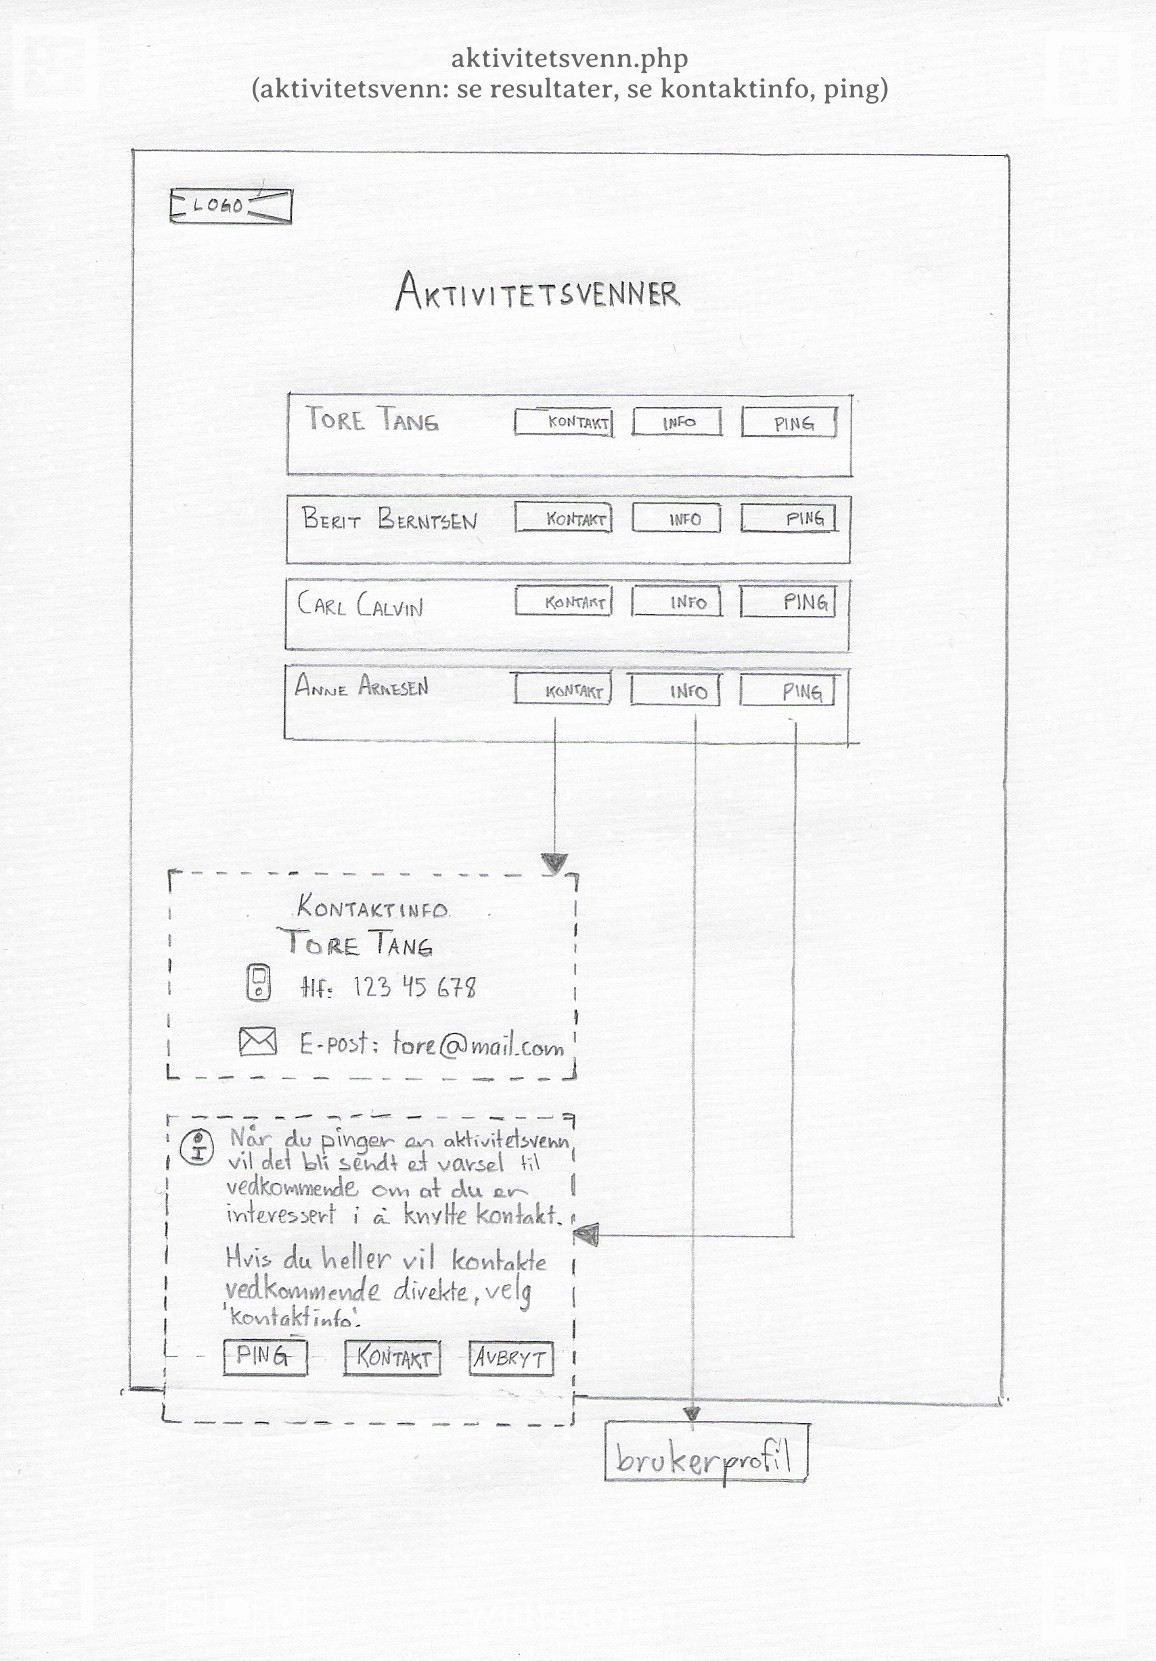 aktivitetsvenn.php
(aktivitetsvenn: se resultater, se kontaktinfo, ping)
LOGO
AKTIVITETSVENNER
TORE TANG KONTAKT INFO PING
BERIT BERNTSEN KONTAKT INFO PING
CARL CALVIN KONTAKT INFO PING
ANNE ARNESEN KONTAKT INFO PING
KONTAKTINFO
TORE TANG
tlf: 123 45 678
E-post: tore@mail.com
i Når du pinger en aktivitetsvenn,
vil det bli sendt et varsel til
vedkommende om at du er
interessert i å knytte kontakt.
Hvis du heller vil kontakte
vedkommende direkte, velg
'kontaktinfo'.
PING KONTAKT AVBRYT
brukerprofil